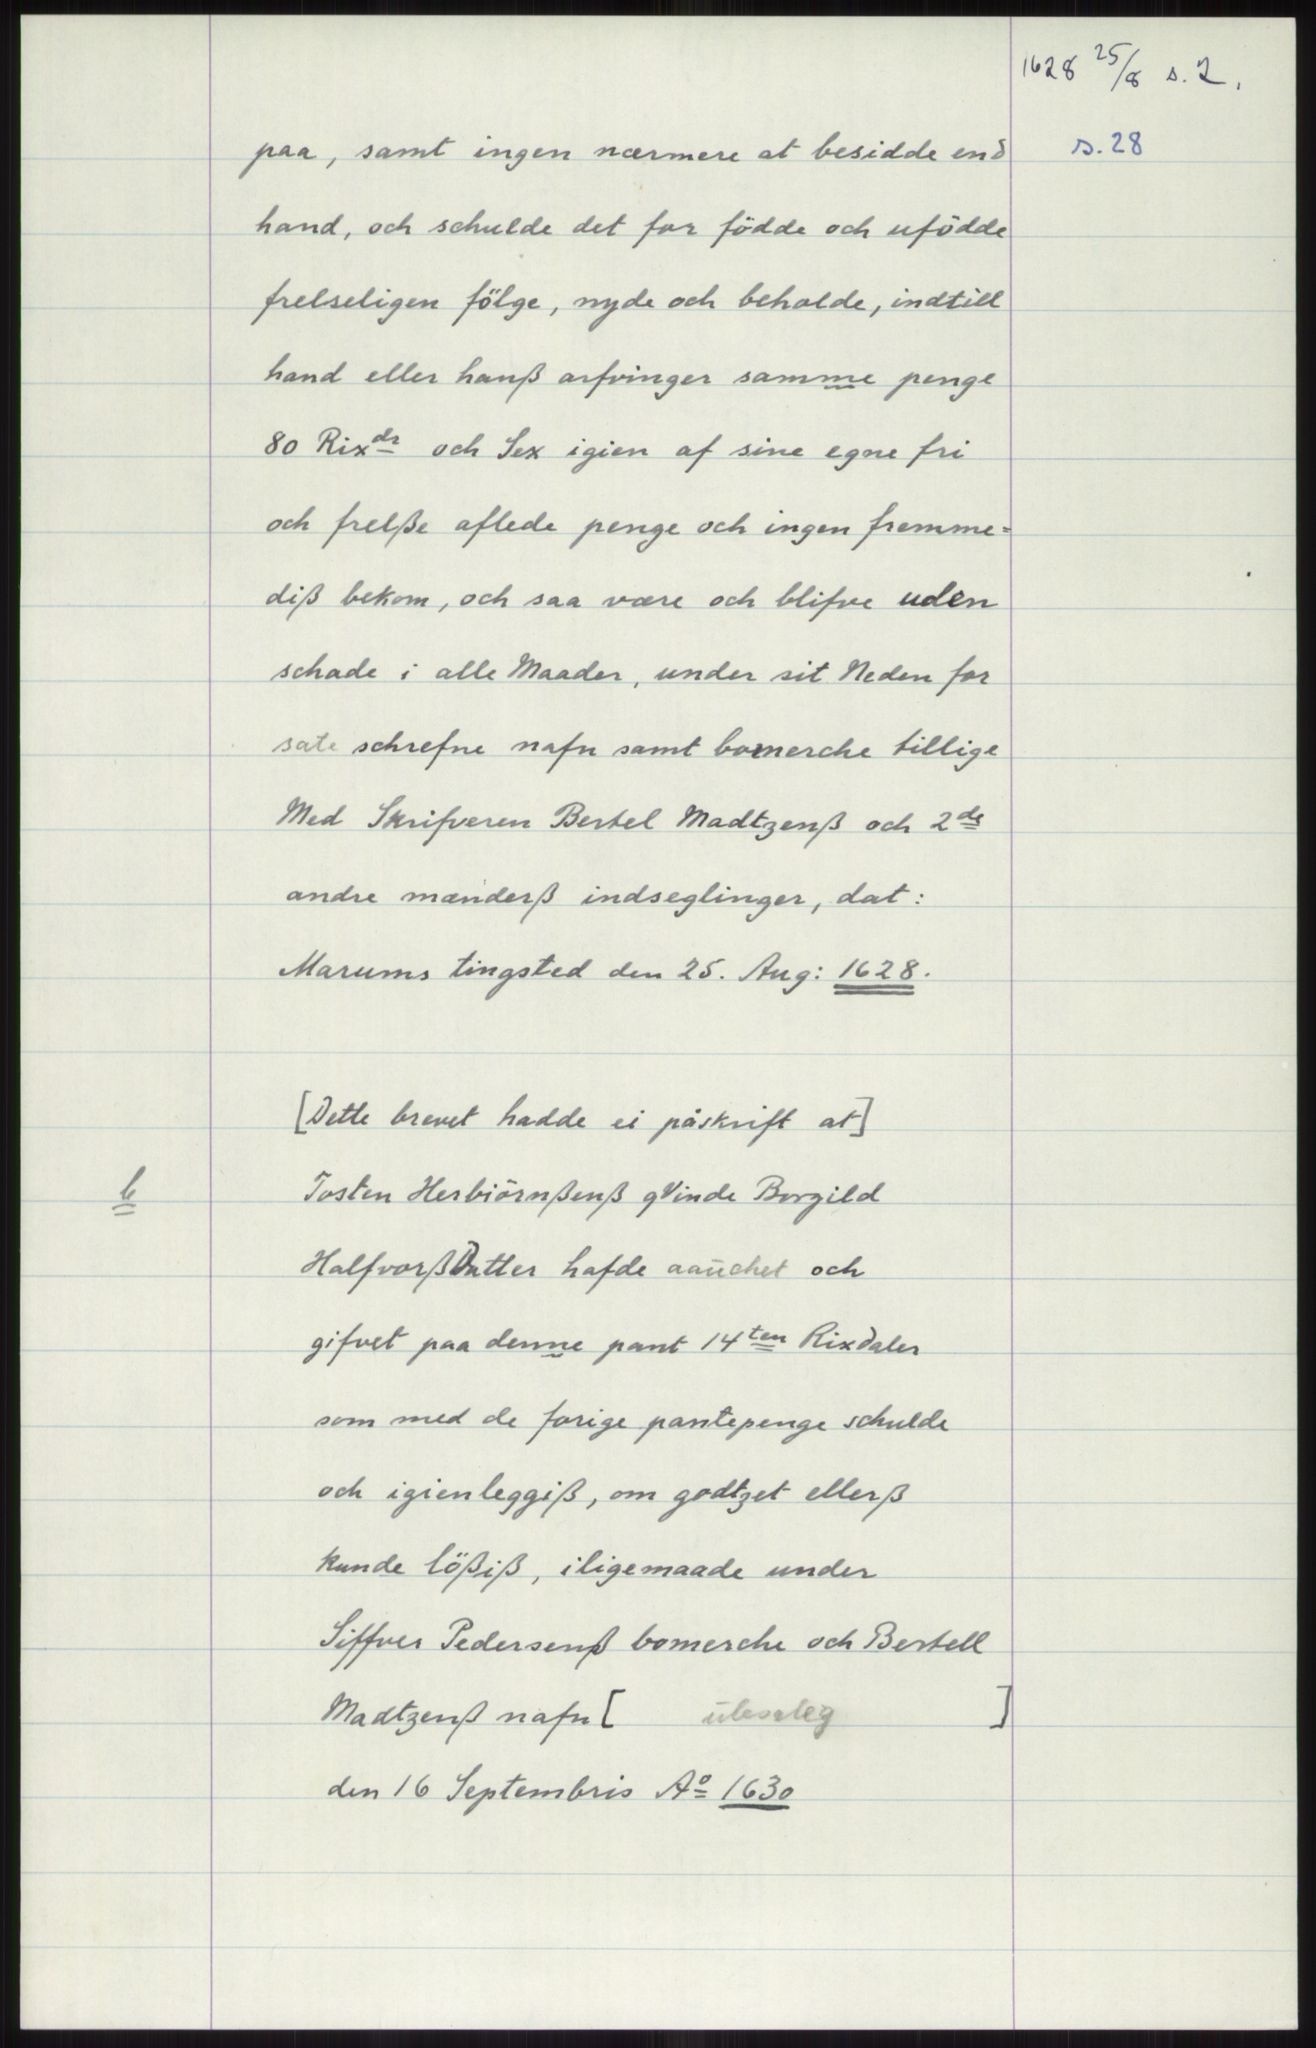 1628 25/8 s. 2.
s. 28
paa, samt ingen nærmere at besidde end
hand, och schulde det for födde och ufödde
frelseligen fölge, nyde och beholde, indtill
hand eller hanß arfvinger samme penge
80 Rixdr och Sex igien af sine egne fri
och frelße aflede penge och ingen fremme=
diß bekom, och saa være och blifve uden
schade i alle Maader, under sit Neden for
sate schrefne nafn samt bomerche tillige
Med Skrifveren Bertel Madtzenß och 2de
andre mænderß indseglinger, dat:
Marums tingsted den 25. Aug: 1628.
[Dette brevet hadde ei påskrift at]
b
Tosten Herbiörnßenß qvinde Borgild
HalfvorßDatter hafde och
gifvet paa denne pant 14ten Rixdaler
som med de forige pantepenge schulde
och igienleggiß, om godtzet ellerß
kunde lößiß, iligemaade under
Siffver Pedersenß bomerche och Bertell
Madtzenß nafn [ ]
den 16 Septembris Ao 1630